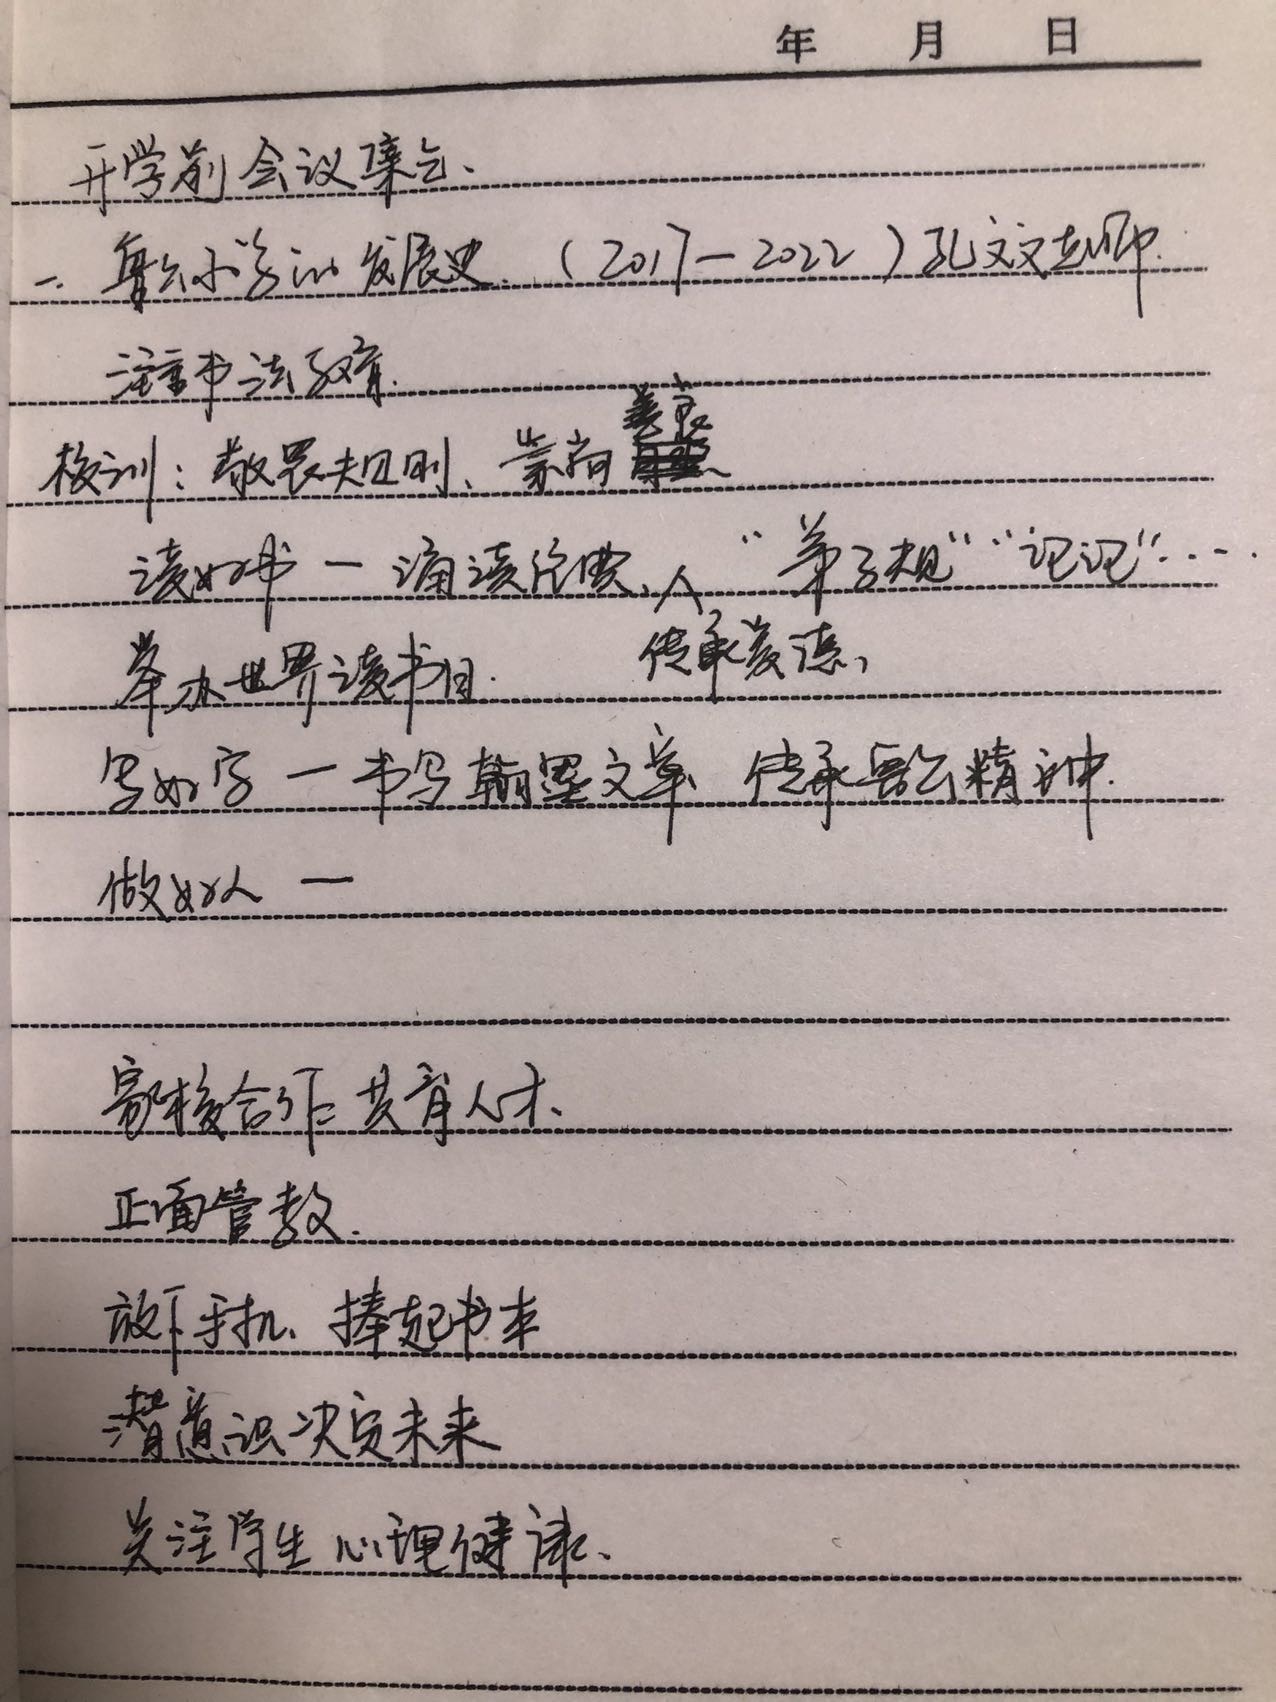 年 月 日
开学前会议集会、
一. 鲁公小学的发展史. (2017-2022) 孔文文老师.
注重书法教育.
校训: 敬畏规则、崇尚善良、
读好书 — 诵读经典、人 "弟子规" "记记"……
传承美德,
举办世界读书日.
写好字 — 书写翰墨文章 传承鲁公精神.
做好人 —
家校合作 共育人才、
正面管教.
放下手机、捧起书本
潜意识决定未来
关注学生心理健康、